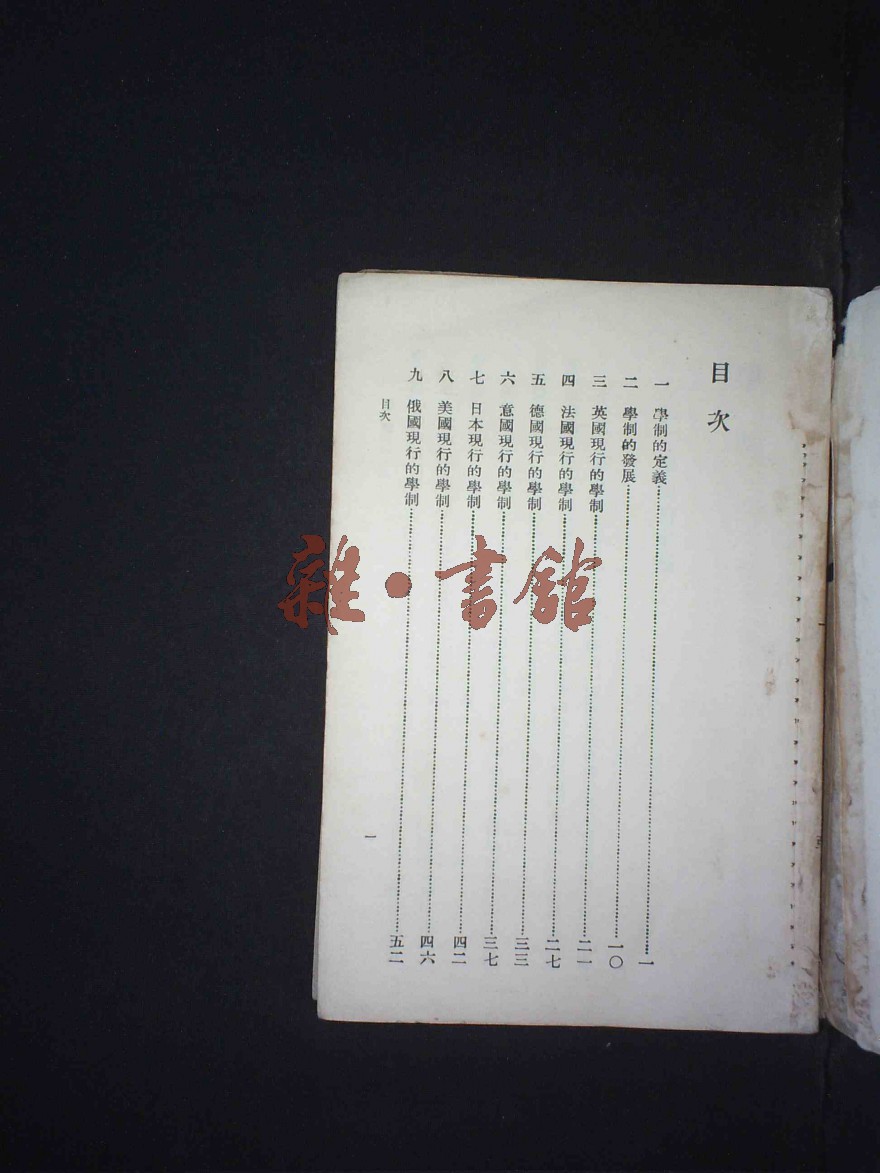 目次
一 學制的定義……一
二 學制的發展……一〇
三 英國現行的學制……二一
四 法國現行的學制……二七
五 德國現行的學制……三三
六 意國現行的學制……三七
七 日本現行的學制……四二
八 美國現行的學制……四六
九 俄國現行的學制……五二
目次
一
雜·書館